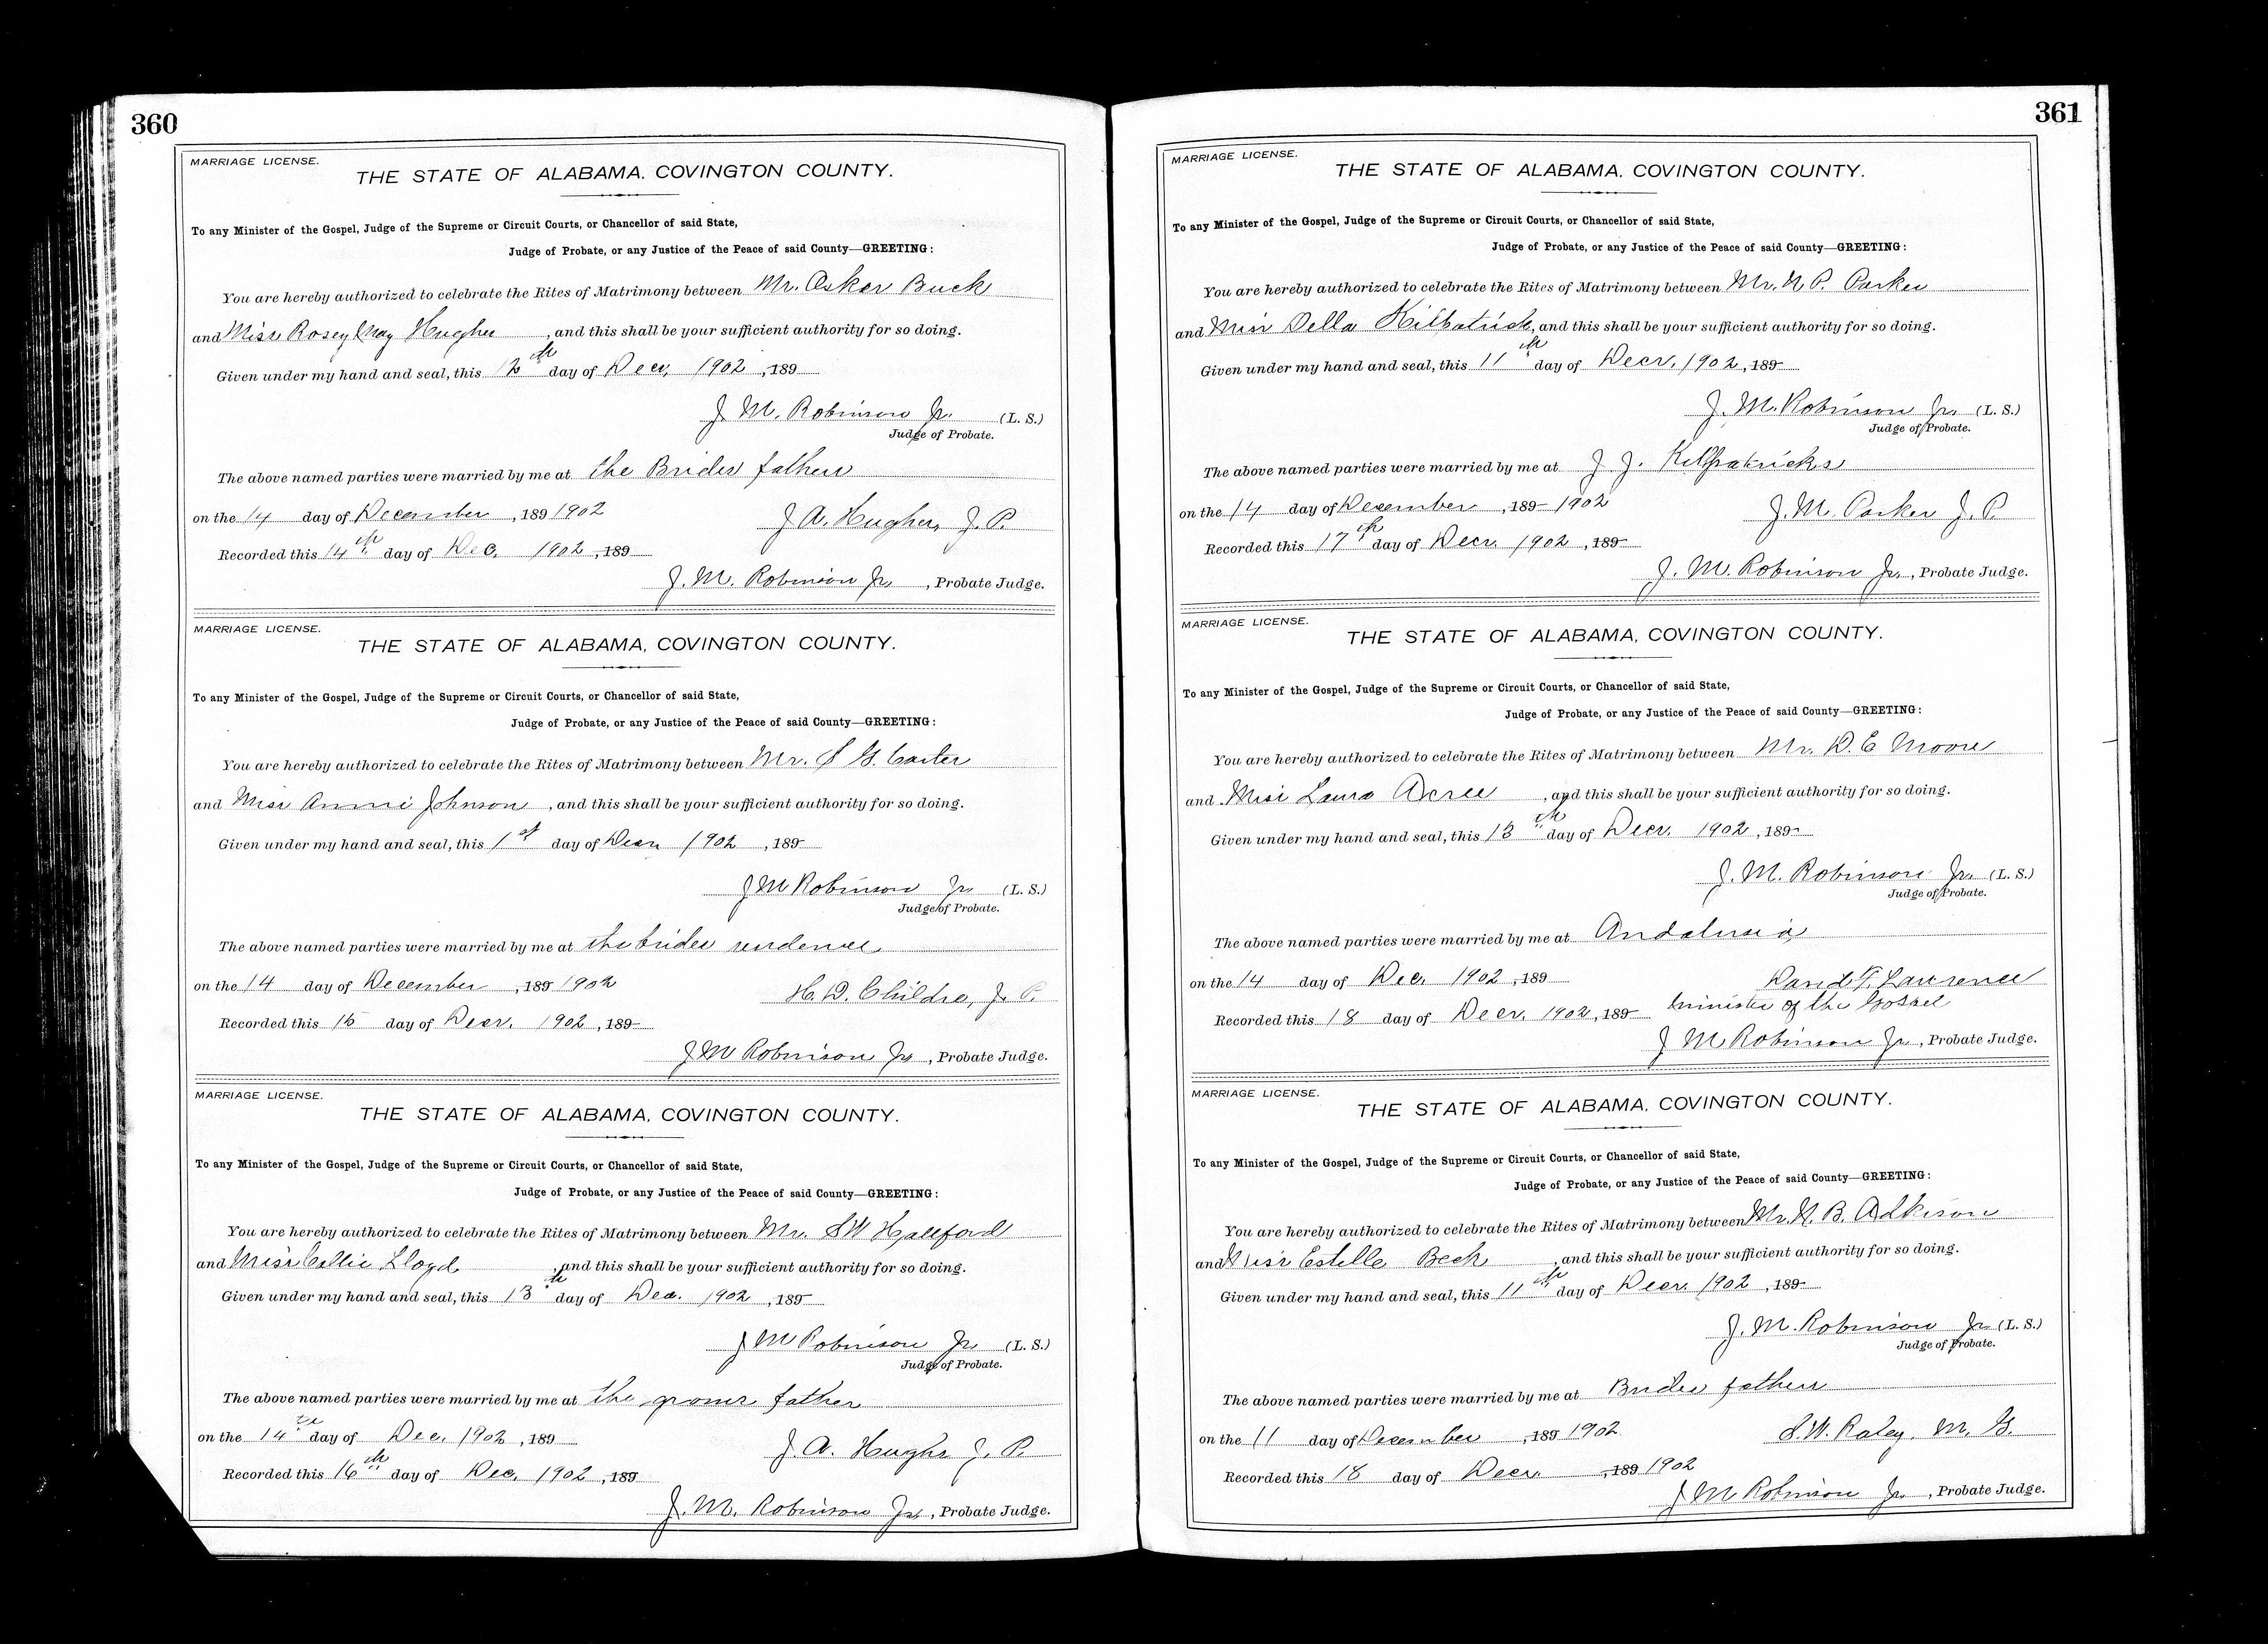 360
MARRIAGE LICENSE.
THE STATE OF ALABAMA, COVINGTON COUNTY.
To any Minister of the Gospel, Judge of the Supreme or Circuit Courts, or Chancellor of said State,
Judge of Probate, or any Justice of the Peace of said County—GREETING:
You are hereby authorized to celebrate the Rites of Matrimony between Mr. Osker Buck
and Miss Rosey May Hughes, and this shall be your sufficient authority for so doing.
Given under my hand and seal, this 12th day of Decr, 1902, 189
J. M. Robinson Jr. (L. S.)
Judge of Probate.
The above named parties were married by me at the Brides fathers
on the 14 day of December, 189 1902 J A. Hughes, J. P.
Recorded this 14th day of Dec. 1902, 189
J. M. Robinson Jr, Probate Judge.
MARRIAGE LICENSE.
THE STATE OF ALABAMA, COVINGTON COUNTY.
To any Minister of the Gospel, Judge of the Supreme or Circuit Courts, or Chancellor of said State,
Judge of Probate, or any Justice of the Peace of said County—GREETING:
You are hereby authorized to celebrate the Rites of Matrimony between Mr. S G. Carter
and Miss Annie Johnson, and this shall be your sufficient authority for so doing.
Given under my hand and seal, this 1st day of Decr 1902, 189
J M Robinson Jr (L. S.)
Judge of Probate.
The above named parties were married by me at the brides residence
on the 14 day of December, 189 1902 H. D. Childre, J. P.
Recorded this 15 day of Decr. 1902, 189
J M Robinson Jr, Probate Judge.
MARRIAGE LICENSE.
THE STATE OF ALABAMA, COVINGTON COUNTY.
To any Minister of the Gospel, Judge of the Supreme or Circuit Courts, or Chancellor of said State,
Judge of Probate, or any Justice of the Peace of said County—GREETING:
You are hereby authorized to celebrate the Rites of Matrimony between Mr. S W Hallford
and Miss Callie Lloyd, and this shall be your sufficient authority for so doing.
Given under my hand and seal, this 13th day of Dec. 1902, 189
J M Robinson Jr (L. S.)
Judge of Probate.
The above named parties were married by me at the grooms father
on the 14th day of Dec. 1902, 189 J. A. Hughs J. P.
Recorded this 16th day of Dec. 1902, 189
J. M. Robinson Jr, Probate Judge.
361
MARRIAGE LICENSE.
THE STATE OF ALABAMA, COVINGTON COUNTY.
To any Minister of the Gospel, Judge of the Supreme or Circuit Courts, or Chancellor of said State,
Judge of Probate, or any Justice of the Peace of said County—GREETING:
You are hereby authorized to celebrate the Rites of Matrimony between Mr. N P. Parker
and Miss Della Kilpatrick, and this shall be your sufficient authority for so doing.
Given under my hand and seal, this 11th day of Decr, 1902, 189
J. M. Robinson Jr. (L. S.)
Judge of Probate.
The above named parties were married by me at J J. Killpatricks
on the 14 day of December, 189 1902 J. M. Parker J. P.
Recorded this 17th day of Decr. 1902, 189
J. M. Robinson Jr., Probate Judge.
MARRIAGE LICENSE.
THE STATE OF ALABAMA, COVINGTON COUNTY.
To any Minister of the Gospel, Judge of the Supreme or Circuit Courts, or Chancellor of said State,
Judge of Probate, or any Justice of the Peace of said County—GREETING:
You are hereby authorized to celebrate the Rites of Matrimony between Mr. D. E Moore
and Miss Laura Acree, and this shall be your sufficient authority for so doing.
Given under my hand and seal, this 13th day of Decr. 1902, 189
J. M. Robinson Jr. (L. S.)
Judge of Probate.
The above named parties were married by me at Andalusia
on the 14 day of Dec. 1902, 189 David F. Lawrence
Recorded this 18 day of Decr. 1902, 189 minister of the Gospel
J M Robinson Jr, Probate Judge.
MARRIAGE LICENSE.
THE STATE OF ALABAMA, COVINGTON COUNTY.
To any Minister of the Gospel, Judge of the Supreme or Circuit Courts, or Chancellor of said State,
Judge of Probate, or any Justice of the Peace of said County—GREETING:
You are hereby authorized to celebrate the Rites of Matrimony between Mr. N. B. Adkison
and Miss Estelle Beck, and this shall be your sufficient authority for so doing.
Given under my hand and seal, this 11th day of Decr. 1902, 189
J. M. Robinson Jr (L. S.)
Judge of Probate.
The above named parties were married by me at Brides fathers
on the 11 day of December, 189 1902 S. W. Raley, M. G.
Recorded this 18 day of Decr., 189 1902
J M Robinson Jr, Probate Judge.